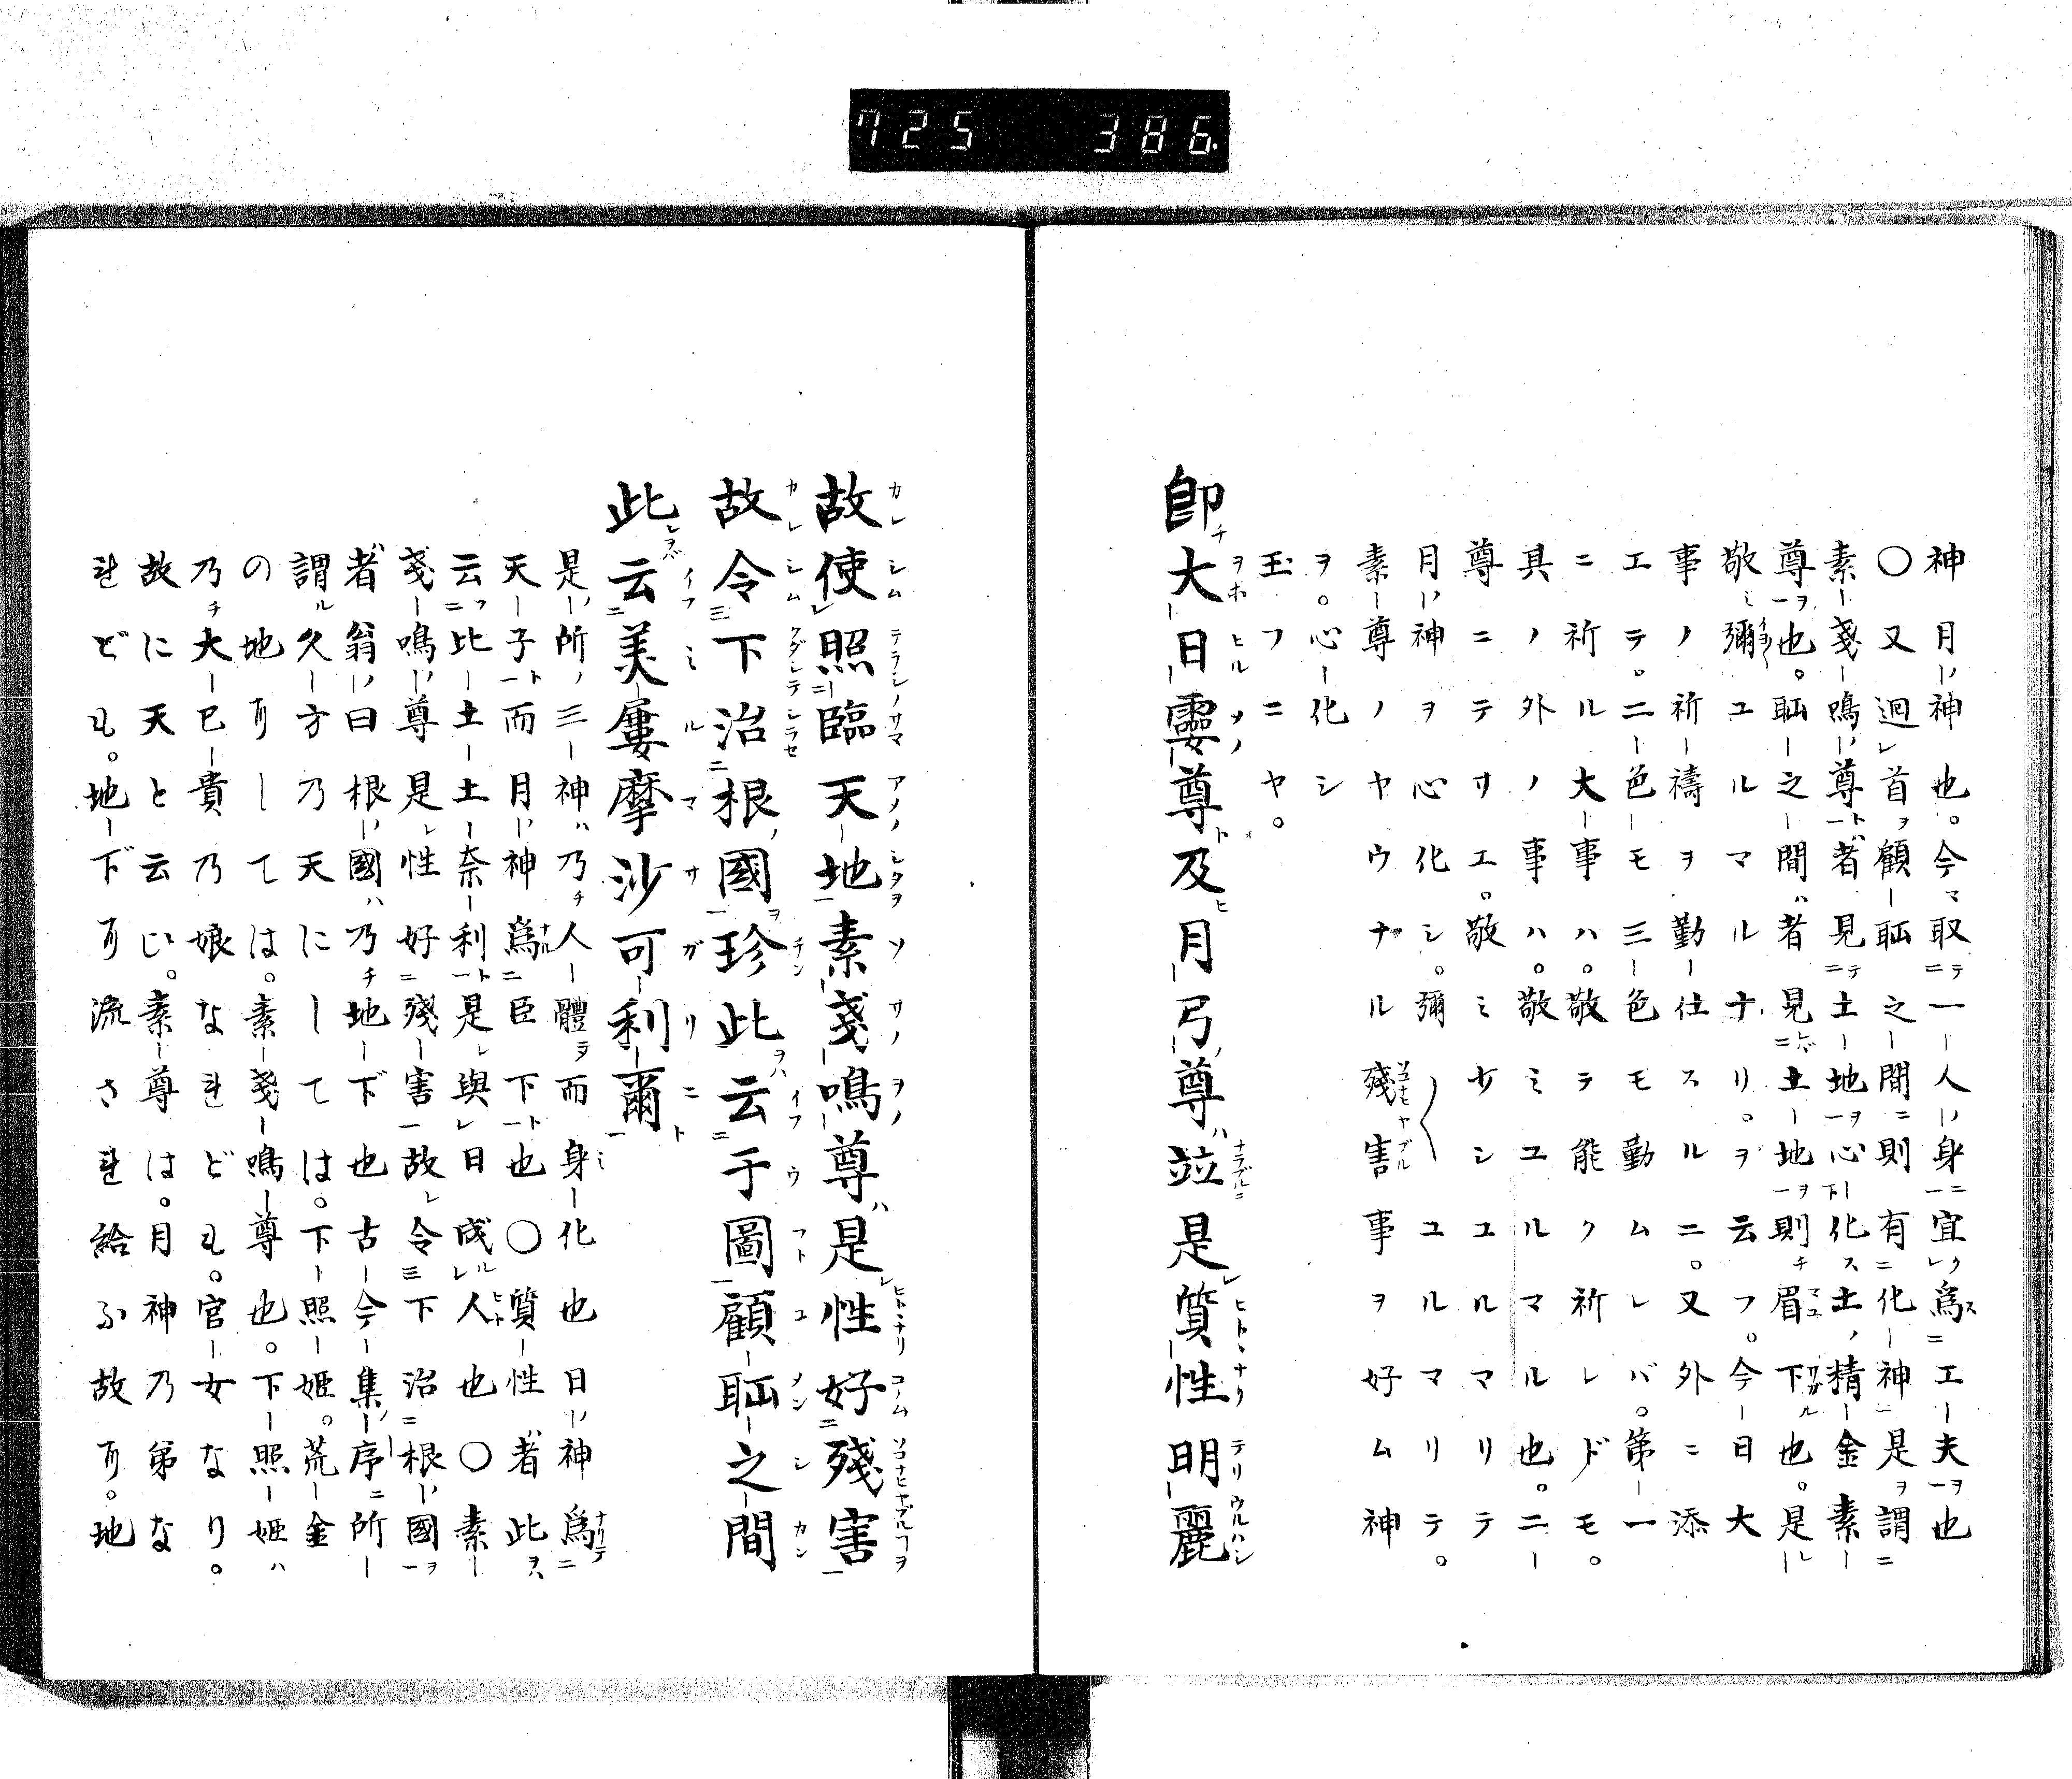 725 386
神月神也。今取一人身宜爲工夫也
〇又迴首顧眄之間則有化神是謂
素戔鳴尊者見土地心化土精金素
尊也。眄之間者見土地則眉下也。是
敬彌ユルマルナリ。ヲ云フ。今日大
事ノ祈禱ヲ勤仕スルニ。又外ニ添
エテ。二色モ三色モ勤ムレバ。第一
ニ祈ル大事ハ。敬テ能ク祈レドモ。
其ノ外ノ事ハ。敬ミユルマル也。二
尊ニテサエ。敬ミ少シユルマリテ
月神ヲ心化シ。彌〱ユルマリテ。
素尊ノヤウナル殘害事ヲ好ム神
ヲ。心化シ
玉フニヤ。
即大日孁尊及月弓尊竝是質性明麗
故使照臨天地素戔鳴尊是性好殘害
故令下治根國珍此云于圖顧眄之間
此云美屢摩沙可利爾
是所三神乃人體而身化也日神爲
天子而月神爲臣下也〇質性者此
云比土土奈利是與日成人也〇素
戔鳴尊是性好殘害故令下治根國
者翁曰根國乃地下也古今集序所
謂久方乃天にしては。下照姫。荒金
の地有しては。素戔鳴尊也。下照姫
乃大已貴乃娘なれども。官女なり。
故に天と云い。素尊は。月神乃弟な
れども。地下有流されを給ふ故有。地